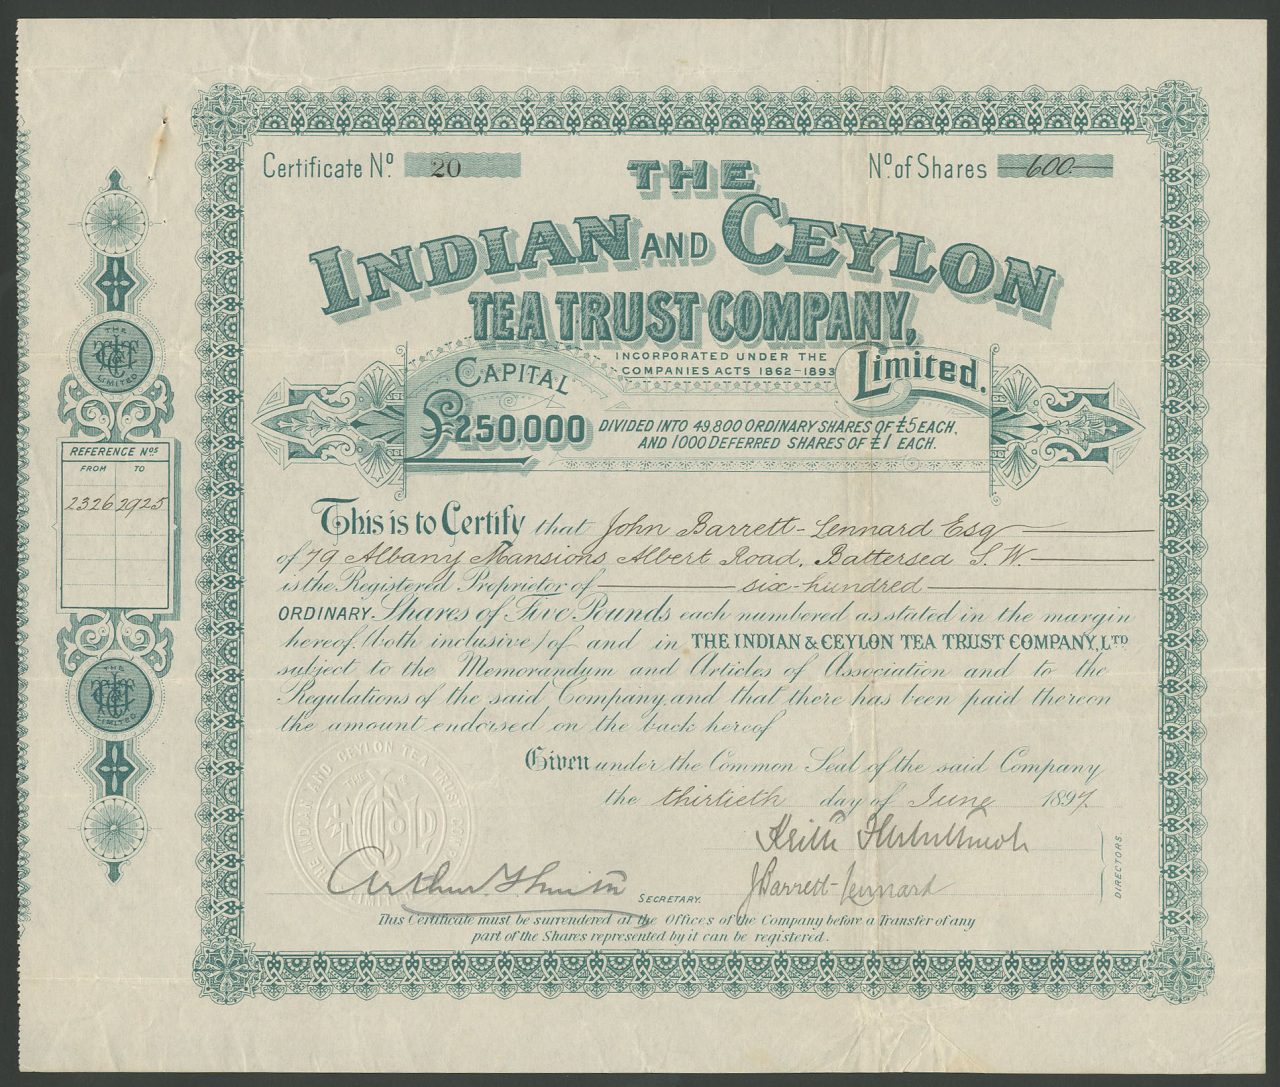 Certificate No. 20
No. of Shares 600
THE
INDIAN AND CEYLON
TEA TRUST COMPANY,
Limited.
INCORPORATED UNDER THE
COMPANIES ACTS 1862-1893
CAPITAL
£250,000
DIVIDED INTO 49,800 ORDINARY SHARES OF £5 EACH,
AND 1000 DEFERRED SHARES OF £1 EACH.
THE
LIMITED
REFERENCE Nos
FROM TO
2326 2925
THE
LIMITED
This is to Certify that John Barrett-Lennard Esq
of 79 Albany Mansions Albert Road, Battersea S.W.
is the Registered Proprietor of six hundred
ORDINARY Shares of Five Pounds each numbered as stated in the margin
hereof (both inclusive) of and in THE INDIAN & CEYLON TEA TRUST COMPANY, LTD
subject to the Memorandum and Articles of Association and to the
Regulations of the said Company, and that there has been paid thereon
the amount endorsed on the back hereof
Given under the Common Seal of the said Company
the thirtieth day of June 1897
THE INDIAN AND CEYLON TEA TRUST COY
LIMITED
Keith
J Barrett-Lennard
DIRECTORS.
Arthur
SECRETARY.
This Certificate must be surrendered at the Offices of the Company before a Transfer of any
part of the Shares represented by it can be registered.